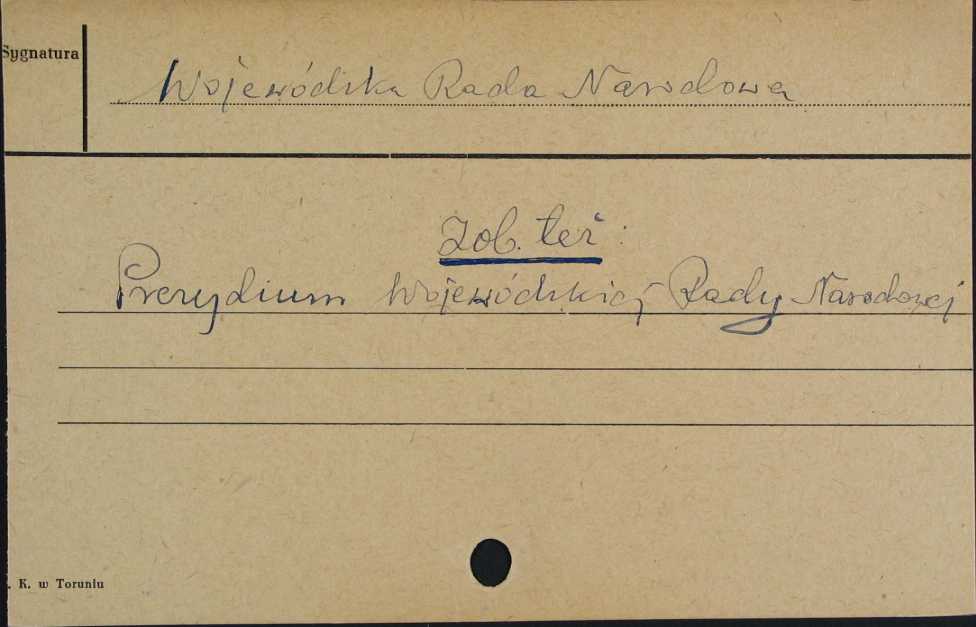 Sygnatura
Wojewódzka Rada Narodowa
Zob. też:
Prezydium Wojewódzkiej Rady Narodowej
. K. w Toruniu